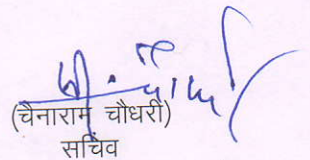 (चेनाराम चौधरी)
सचिव